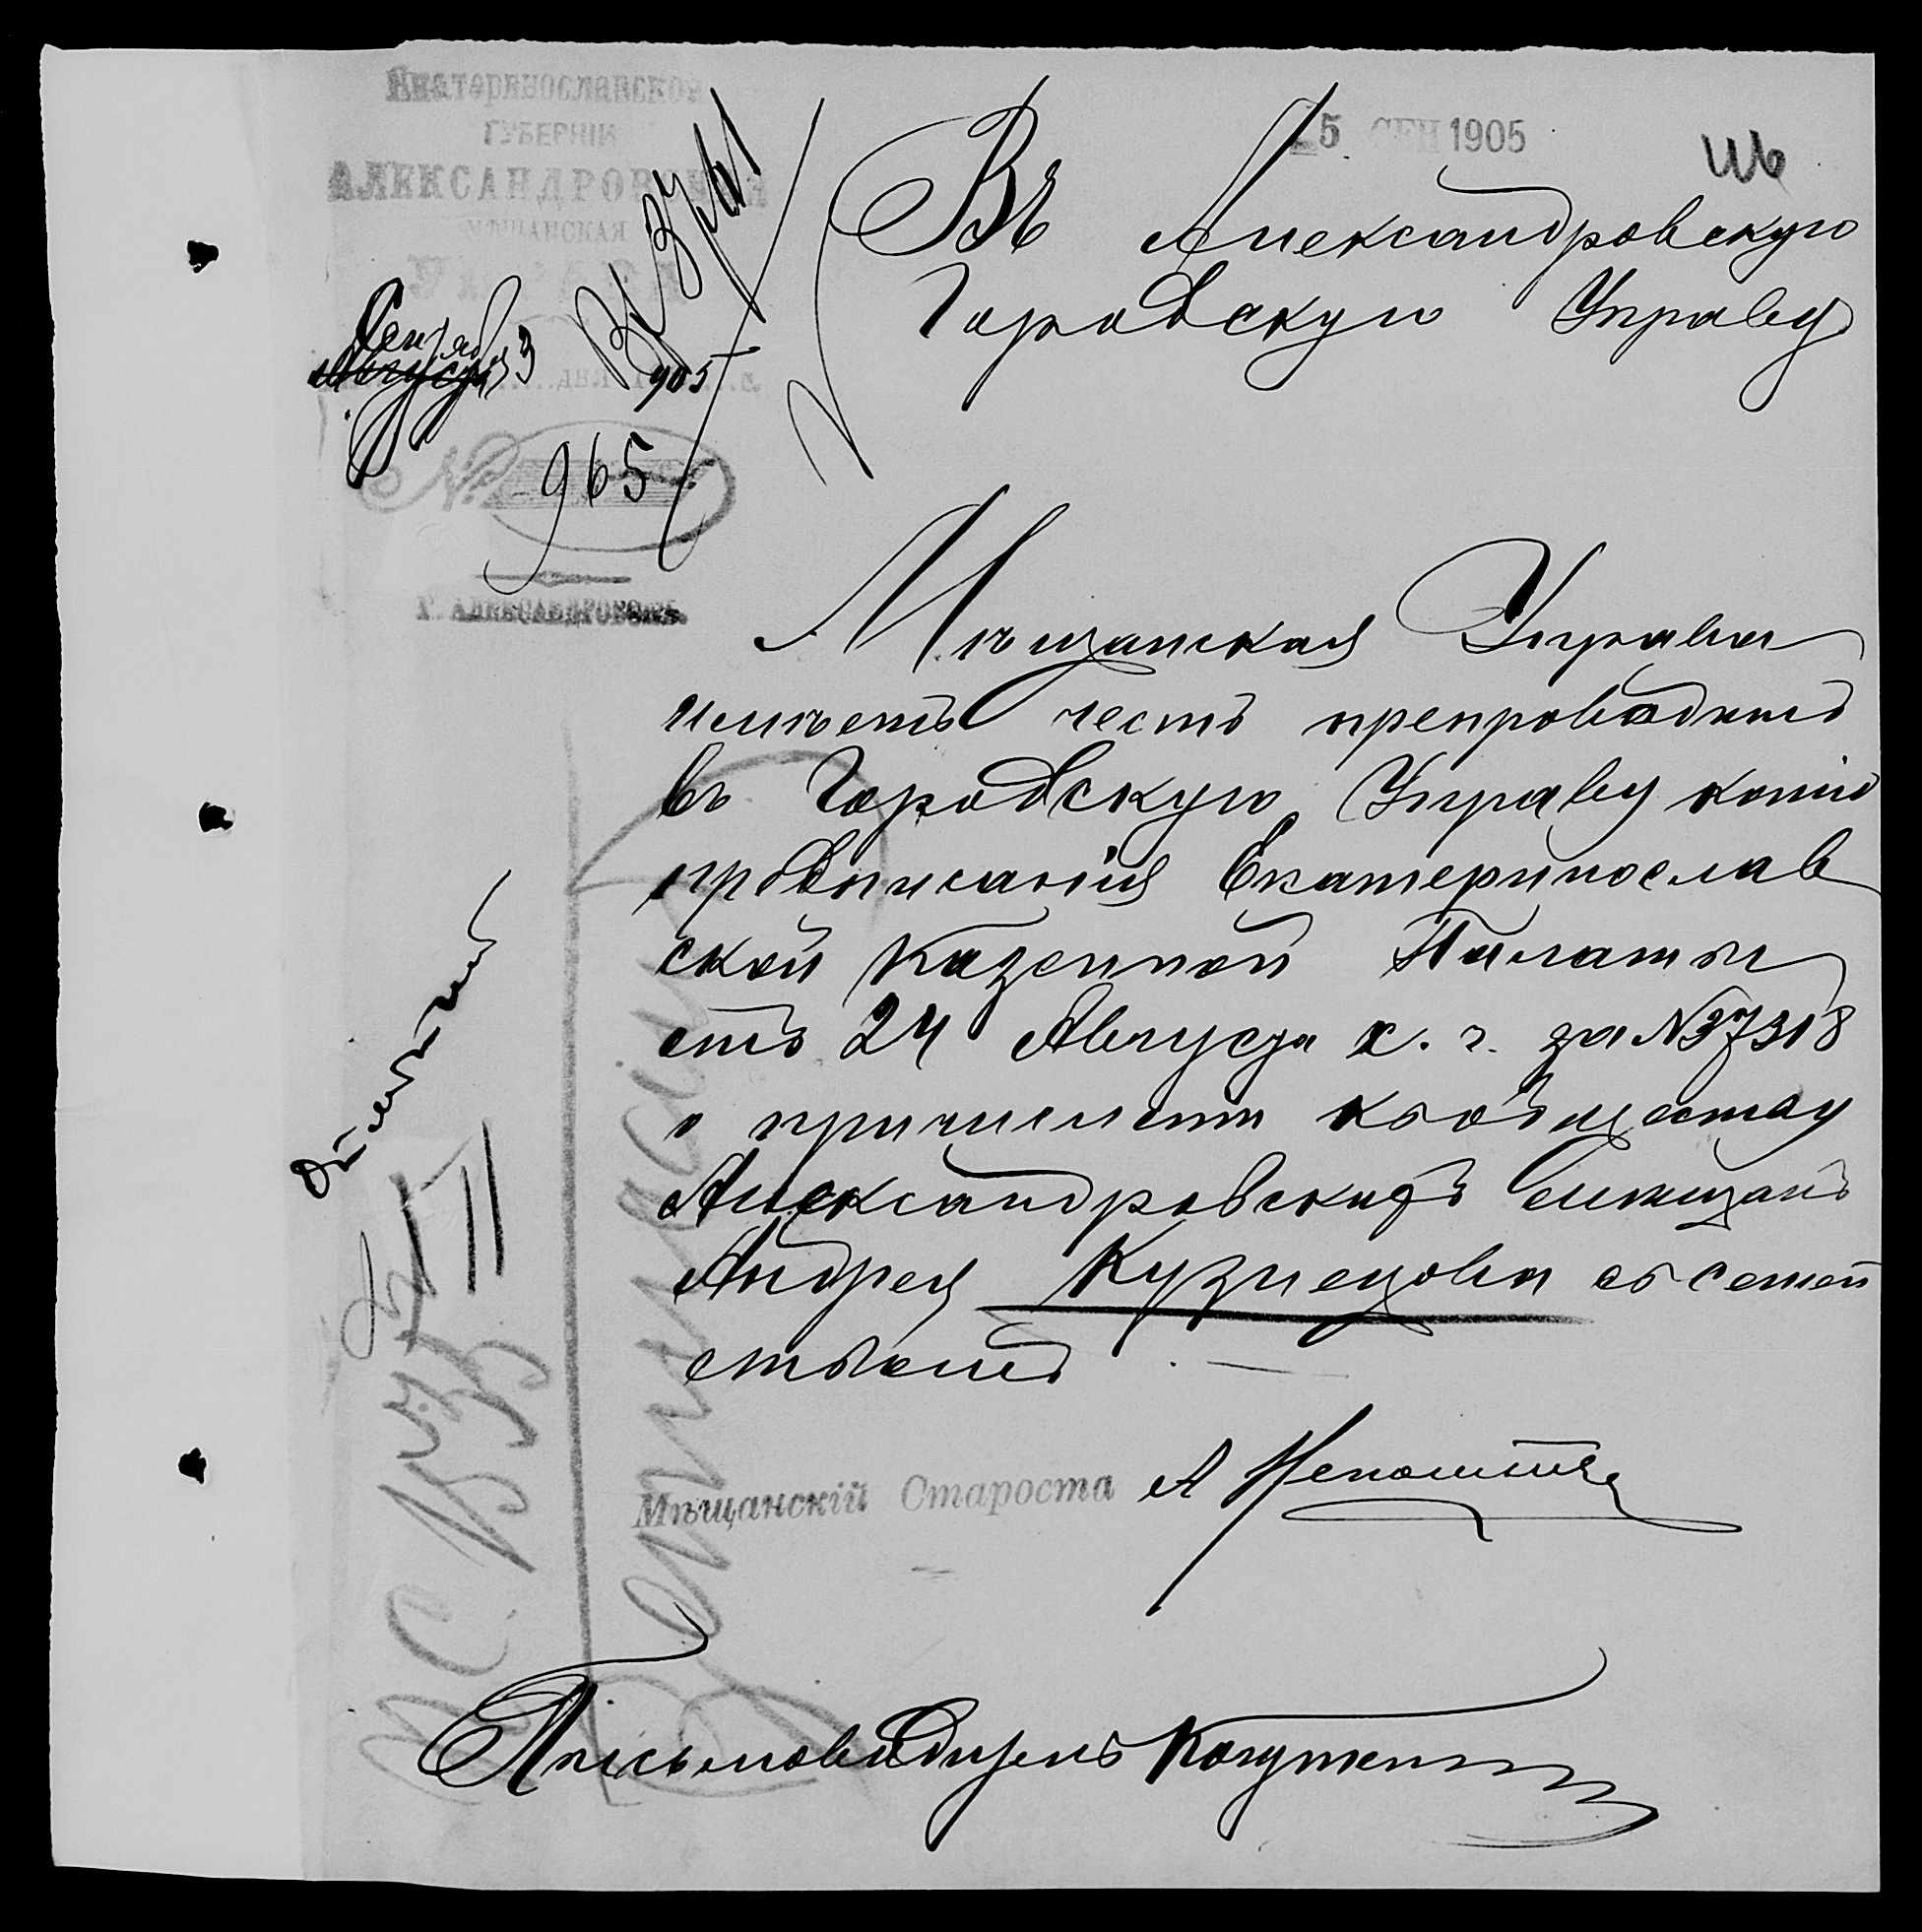 Екатеринославской
ГУБЕРНІИ
АЛЕКСАНДРОВСКАЯ
МѢЩАНСКАЯ
УПРАВА
Сентяб 3
Августа
905
№ 965
Г. АЛЕКСАНДРОВСКЪ.
5 СЕН 1905
Въ Александровскую
Городскую Управу
Мѣщанская Управа
имѣетъ честь препроводить
въ Городскую Управу копію
предписанія Екатеринослав
ской Казенной Палаты
отъ 24 Августа с. г. за №37318
о причислении къ обществу
Александровскихъ мѣщанъ
Андрея Кузнецова съ семей
ствомъ
Мѣщанскій Староста А
Письмоводитель